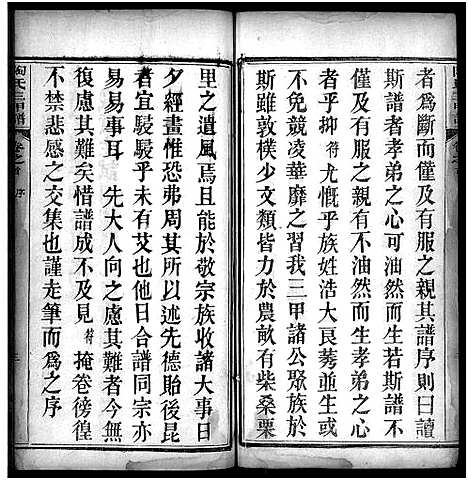 者爲斷而僅及有服之親其譜序則曰讀
斯譜者孝弟之心可油然而生若斯譜不
僅及有服之親有不油然而生孝弟之心
者乎抑符尤慨乎族姓浩大良莠並生或
不免競凌華靡之習我三甲諸公聚族於
斯雖敦樸少文類皆力於農畝有柴桑栗
里之遺風焉且能於敬宗族收諸大事日
夕經畫惟恐弗周其所以述先德貽後昆
者宜駸駸乎未有艾也他日合譜同宗亦
易易事耳 先大人向之慮其難者今無
復慮其難矣惜譜成不及見 符掩卷徬徨
不禁悲感之交集也謹走筆而爲之序
卷之首 序